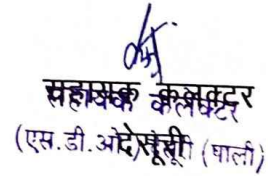 सहायक कलक्टर
(एस.डी.ओ) देसूरी (पाली)